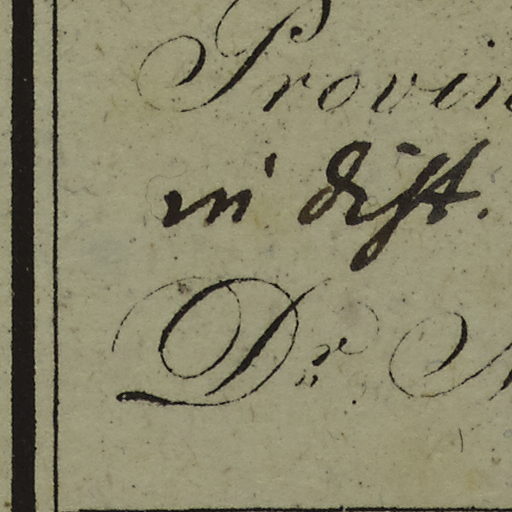 Provin
in dist.
Dr. A